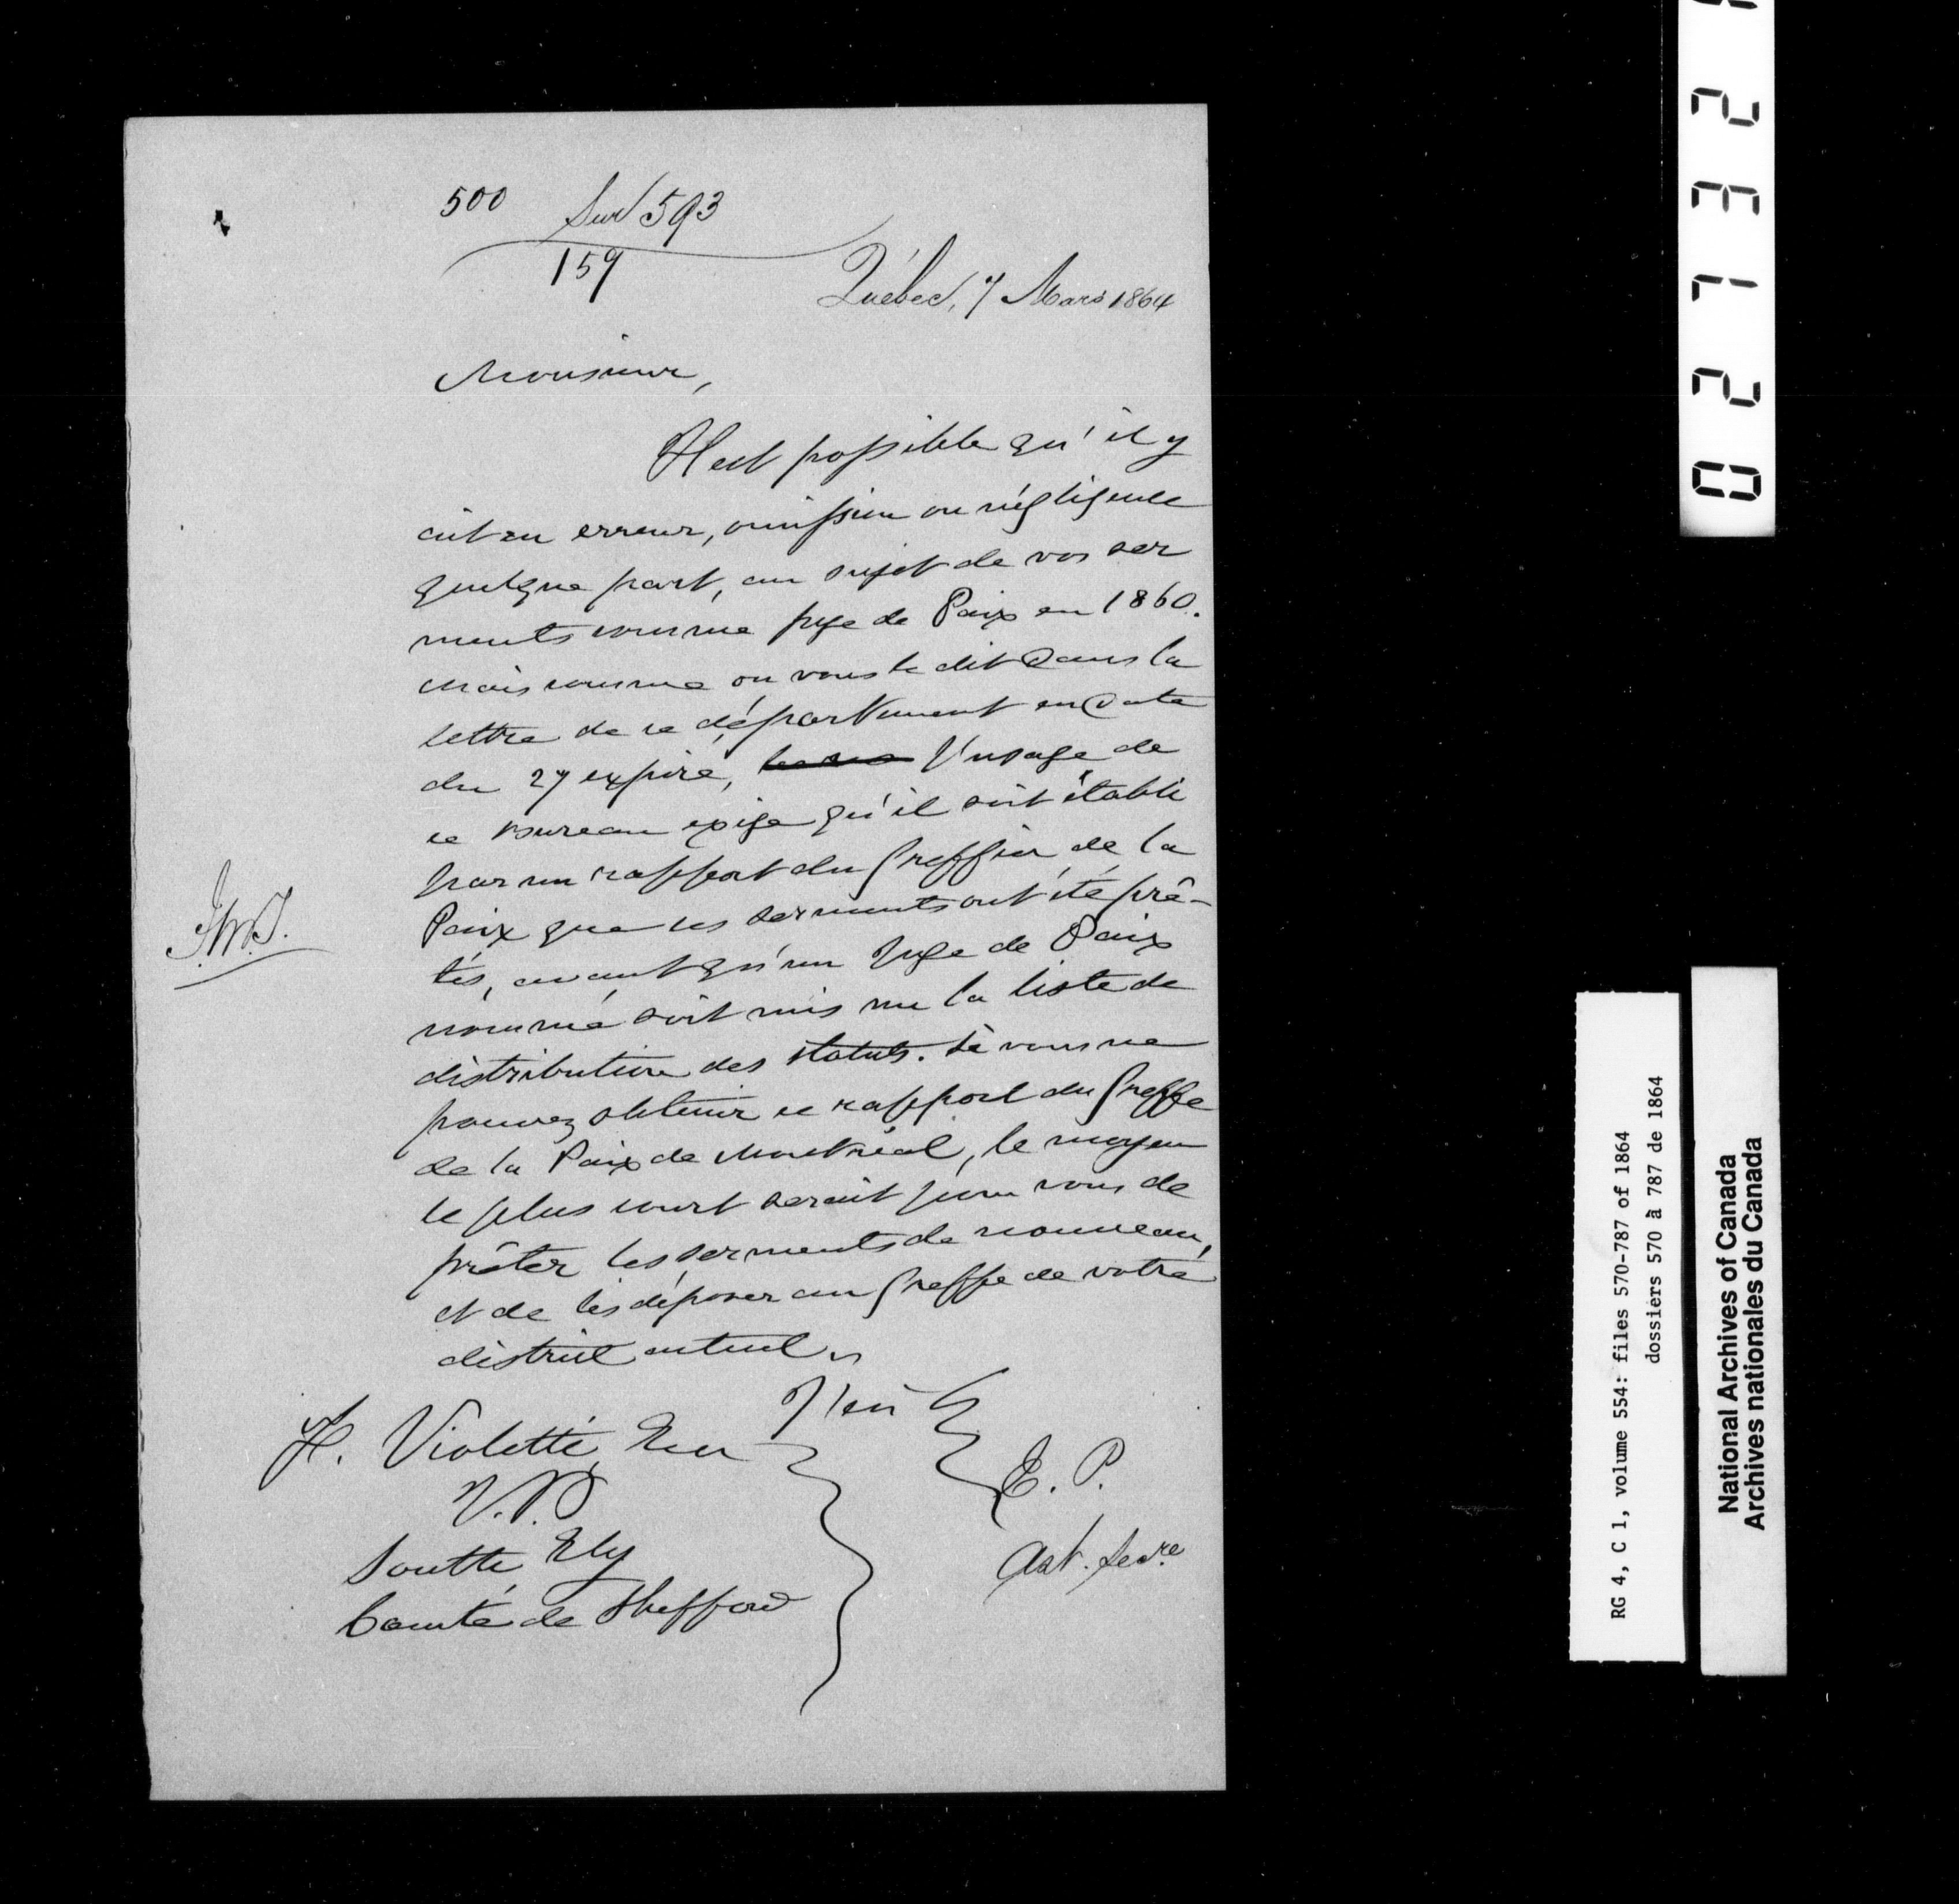 500 Sur 593
159
Québec, 7 Mars 1864
Monsieur,
Il est possible qu'il y
ait eu erreur, omission ou négligence
quelque part, au sujet de vos ser
ments comme juge de Paix en 1860.
Mais comme on vous le dit dans la
lettre de ce département en date
du 27 expiré, l'usage de
ce bureau exige qu'il soit établi
par un rapport du Greffier de la
Paix que les serments ont été prê-
tés, avant qu'un Juge de Paix
nommé soit mis sur la liste de
distribution des statuts. Si vous ne
pouvez obtenir ce rapport du Greffe
de la Paix de Montréal, le moyen
le plus court serait pour vous de
prêter les serments de nouveau,
et de les déposer au Greffe de votre
district actuel.
J'ai &
H. Violette, Ecr
J.P.
South Ely
Comté de Shefford
E. P.
Ast. Secre
02132
RG 4, C 1, volume 554: files 570-787 of 1864
dossiers 570 à 787 de 1864
National Archives of Canada
Archives nationales du Canada